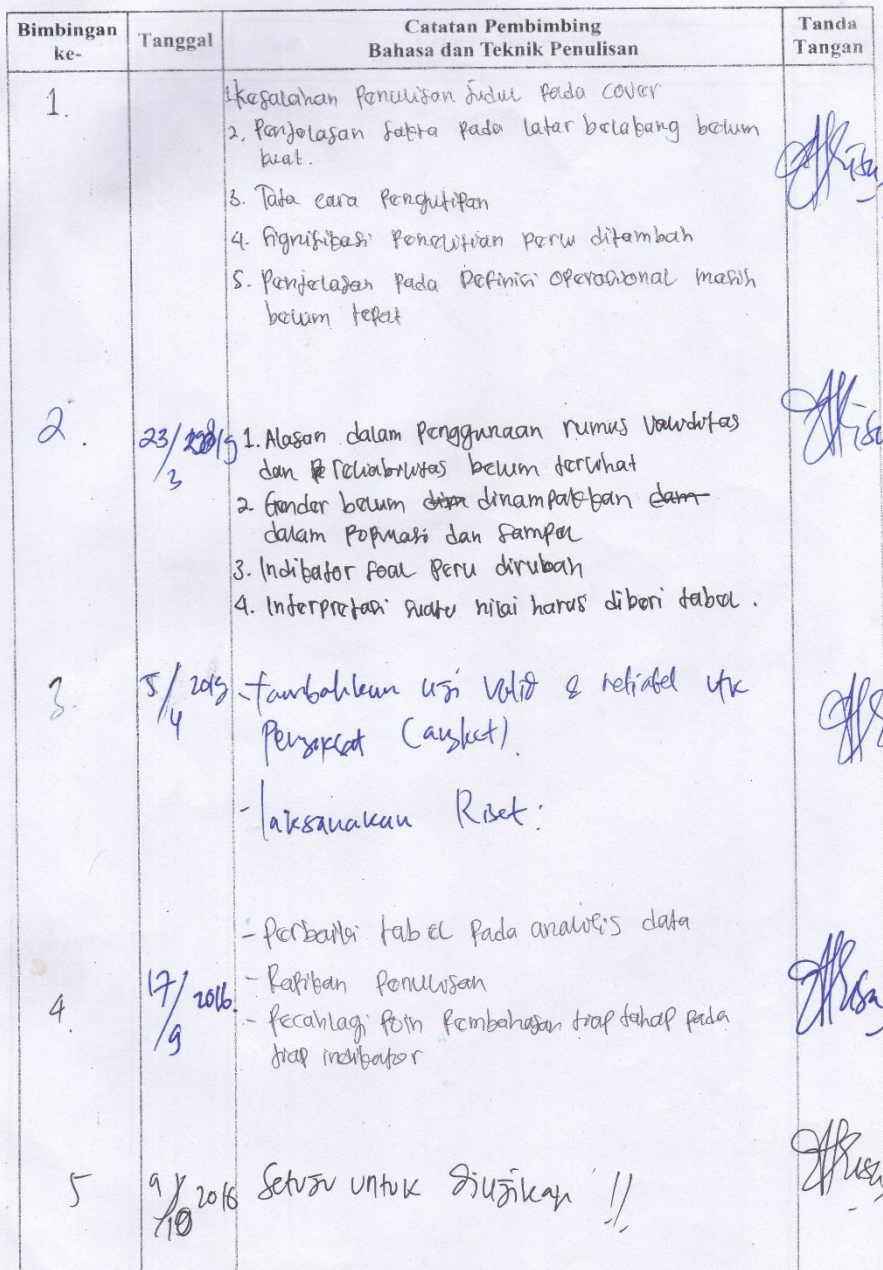 Bimbingan ke-
Tanggal
Catatan Pembimbing
Bahasa dan Teknik Penulisan
Tanda Tangan
1.
1. Kesalahan Penulisan Judul Pada Cover
2. Penjelasan fakta pada latar belakang belum
kuat.
3. Tata cara Pengutipan
4. Signifikasi Penelitian perlu ditambah
5. Penjelasan pada Definisi Operasional masih
belum tepat
2.
23/3
1. Alasan dalam penggunaan rumus validitas
dan reliabilitas belum terlihat
2. Gender belum dinampakkan
dalam Populasi dan Sampel
3. Indikator soal perlu dirubah
4. Interpretasi suatu nilai harus diberi tabel.
3.
5/4
- Tambahkan uji valid & reliabel utk
(angket)
- laksanakan Riset.
4.
17/9 2016.
- Perbaiki tabel pada analisis data
- Rapikan Penulisan
- Pecahlagi Poin Pembahasan tiap tahap pada
tiap indikator
5
9/10 2016
Setuju untuk diujikan !!